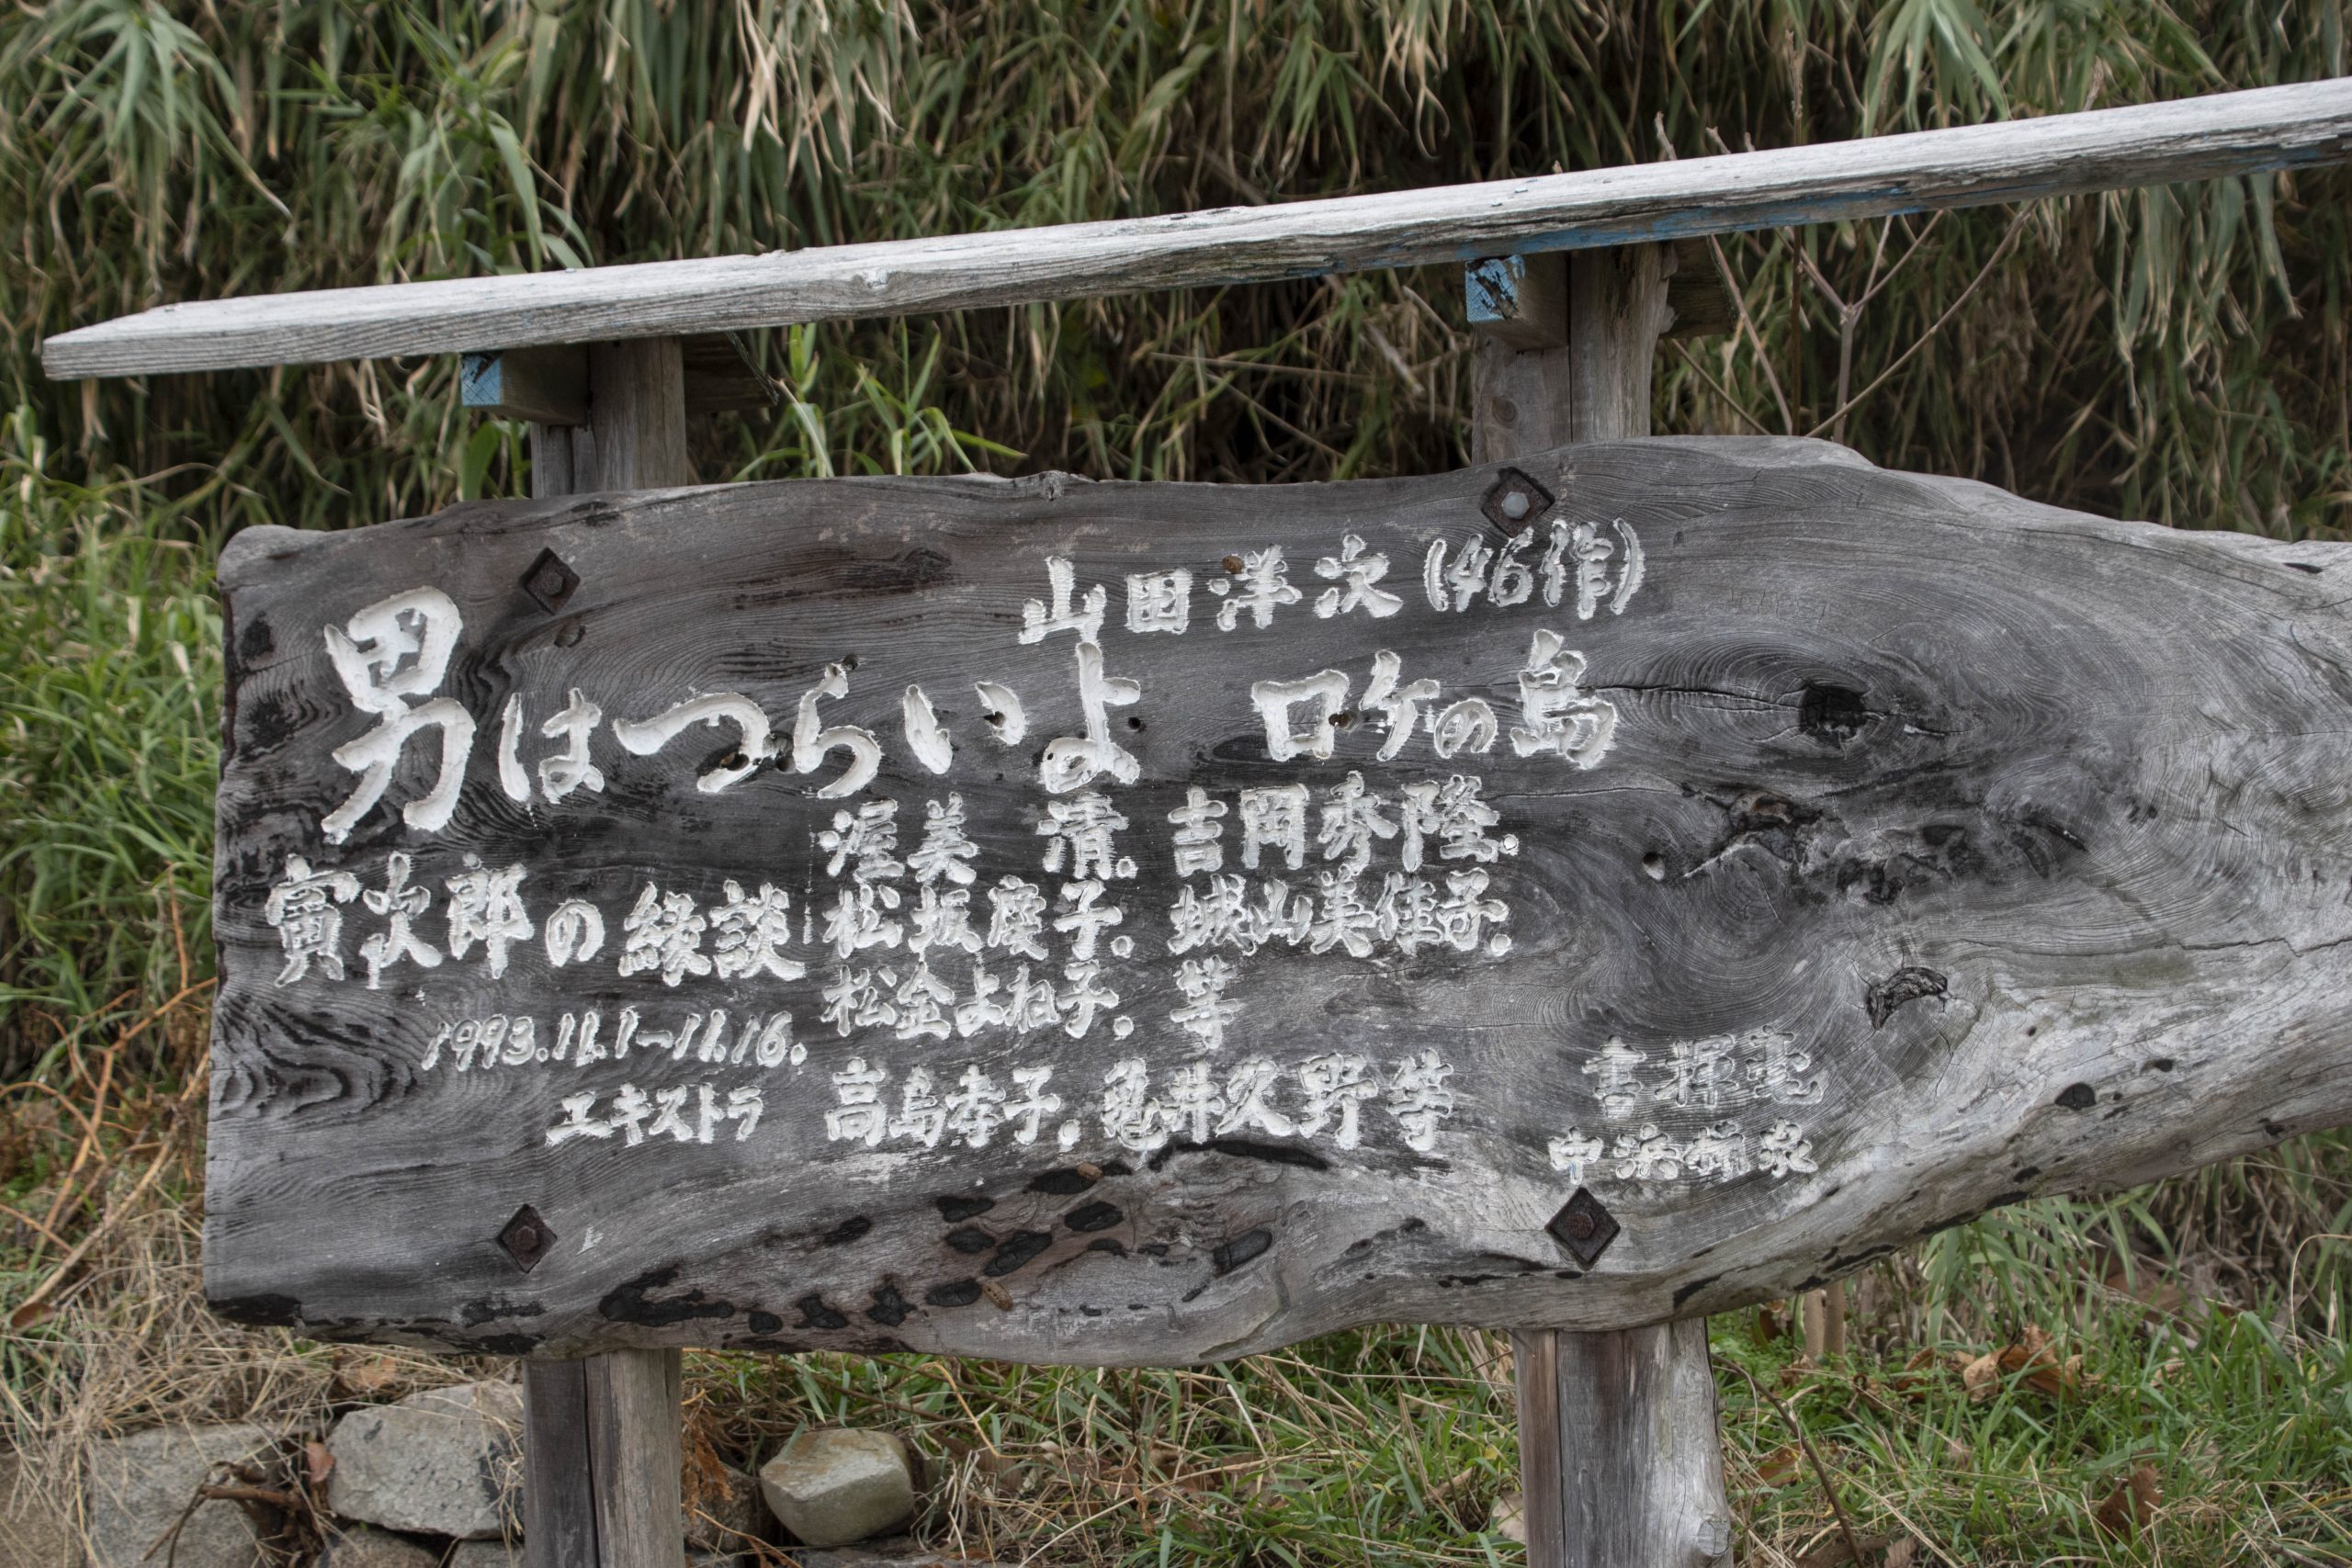 山田洋次(46作)
男はつらいよ ロケの島
寅次郎の縁談
渥美 清. 吉岡秀隆.
松坂慶子. 城山美佳子.
松金よね子. 等
1993.11.1~11.16.
エキストラ 高島孝子. 亀井久野等
書 輝
中浜